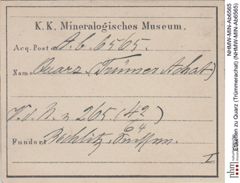 K. K. Mineralogisches Museum.
Acq. Post A.b. 6565.
Name Quarz (Trümer Achat)
V.I.N. = 265
Fundort
I
NHMW-MIN-Ab6565
Etiketten zu Quarz (Trümmerachat) (NHMW-MIN-Ab6565)
nhm